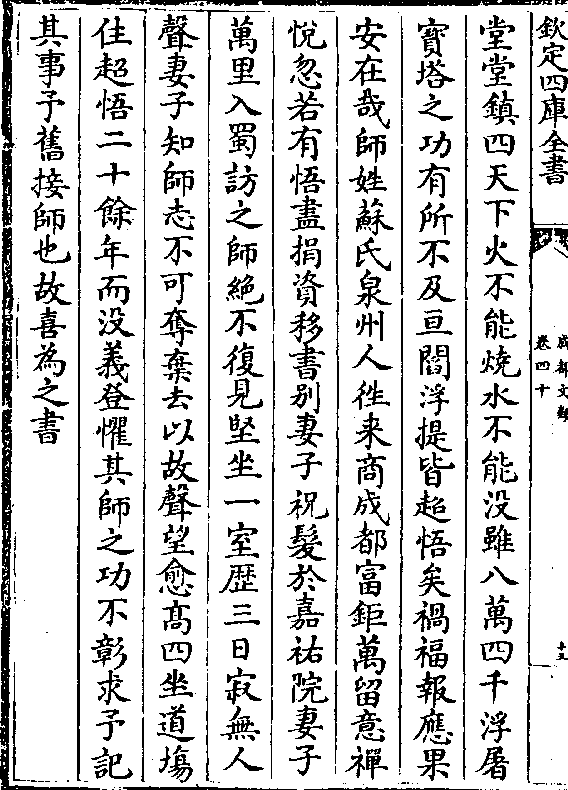 欽定四庫全書
成都文類
卷四十
十五
堂堂鎮四天下火不能燒水不能没雖八萬四千浮屠
寳塔之功有所不及亘閻浮提皆超悟矣禍福報應果
安在哉師姓蘇氏泉州人徃来商成都富鉅萬留意禪
悅忽若有悟盡捐資移書别妻子祝髮於嘉祐院妻子
萬里入蜀訪之師絶不復見堅坐一室歴三日寂無人
聲妻子知師志不可奪棄去以故聲望愈髙四坐道塲
住超悟二十餘年而没義登懼其師之功不彰求予記
其事予舊接師也故喜為之書